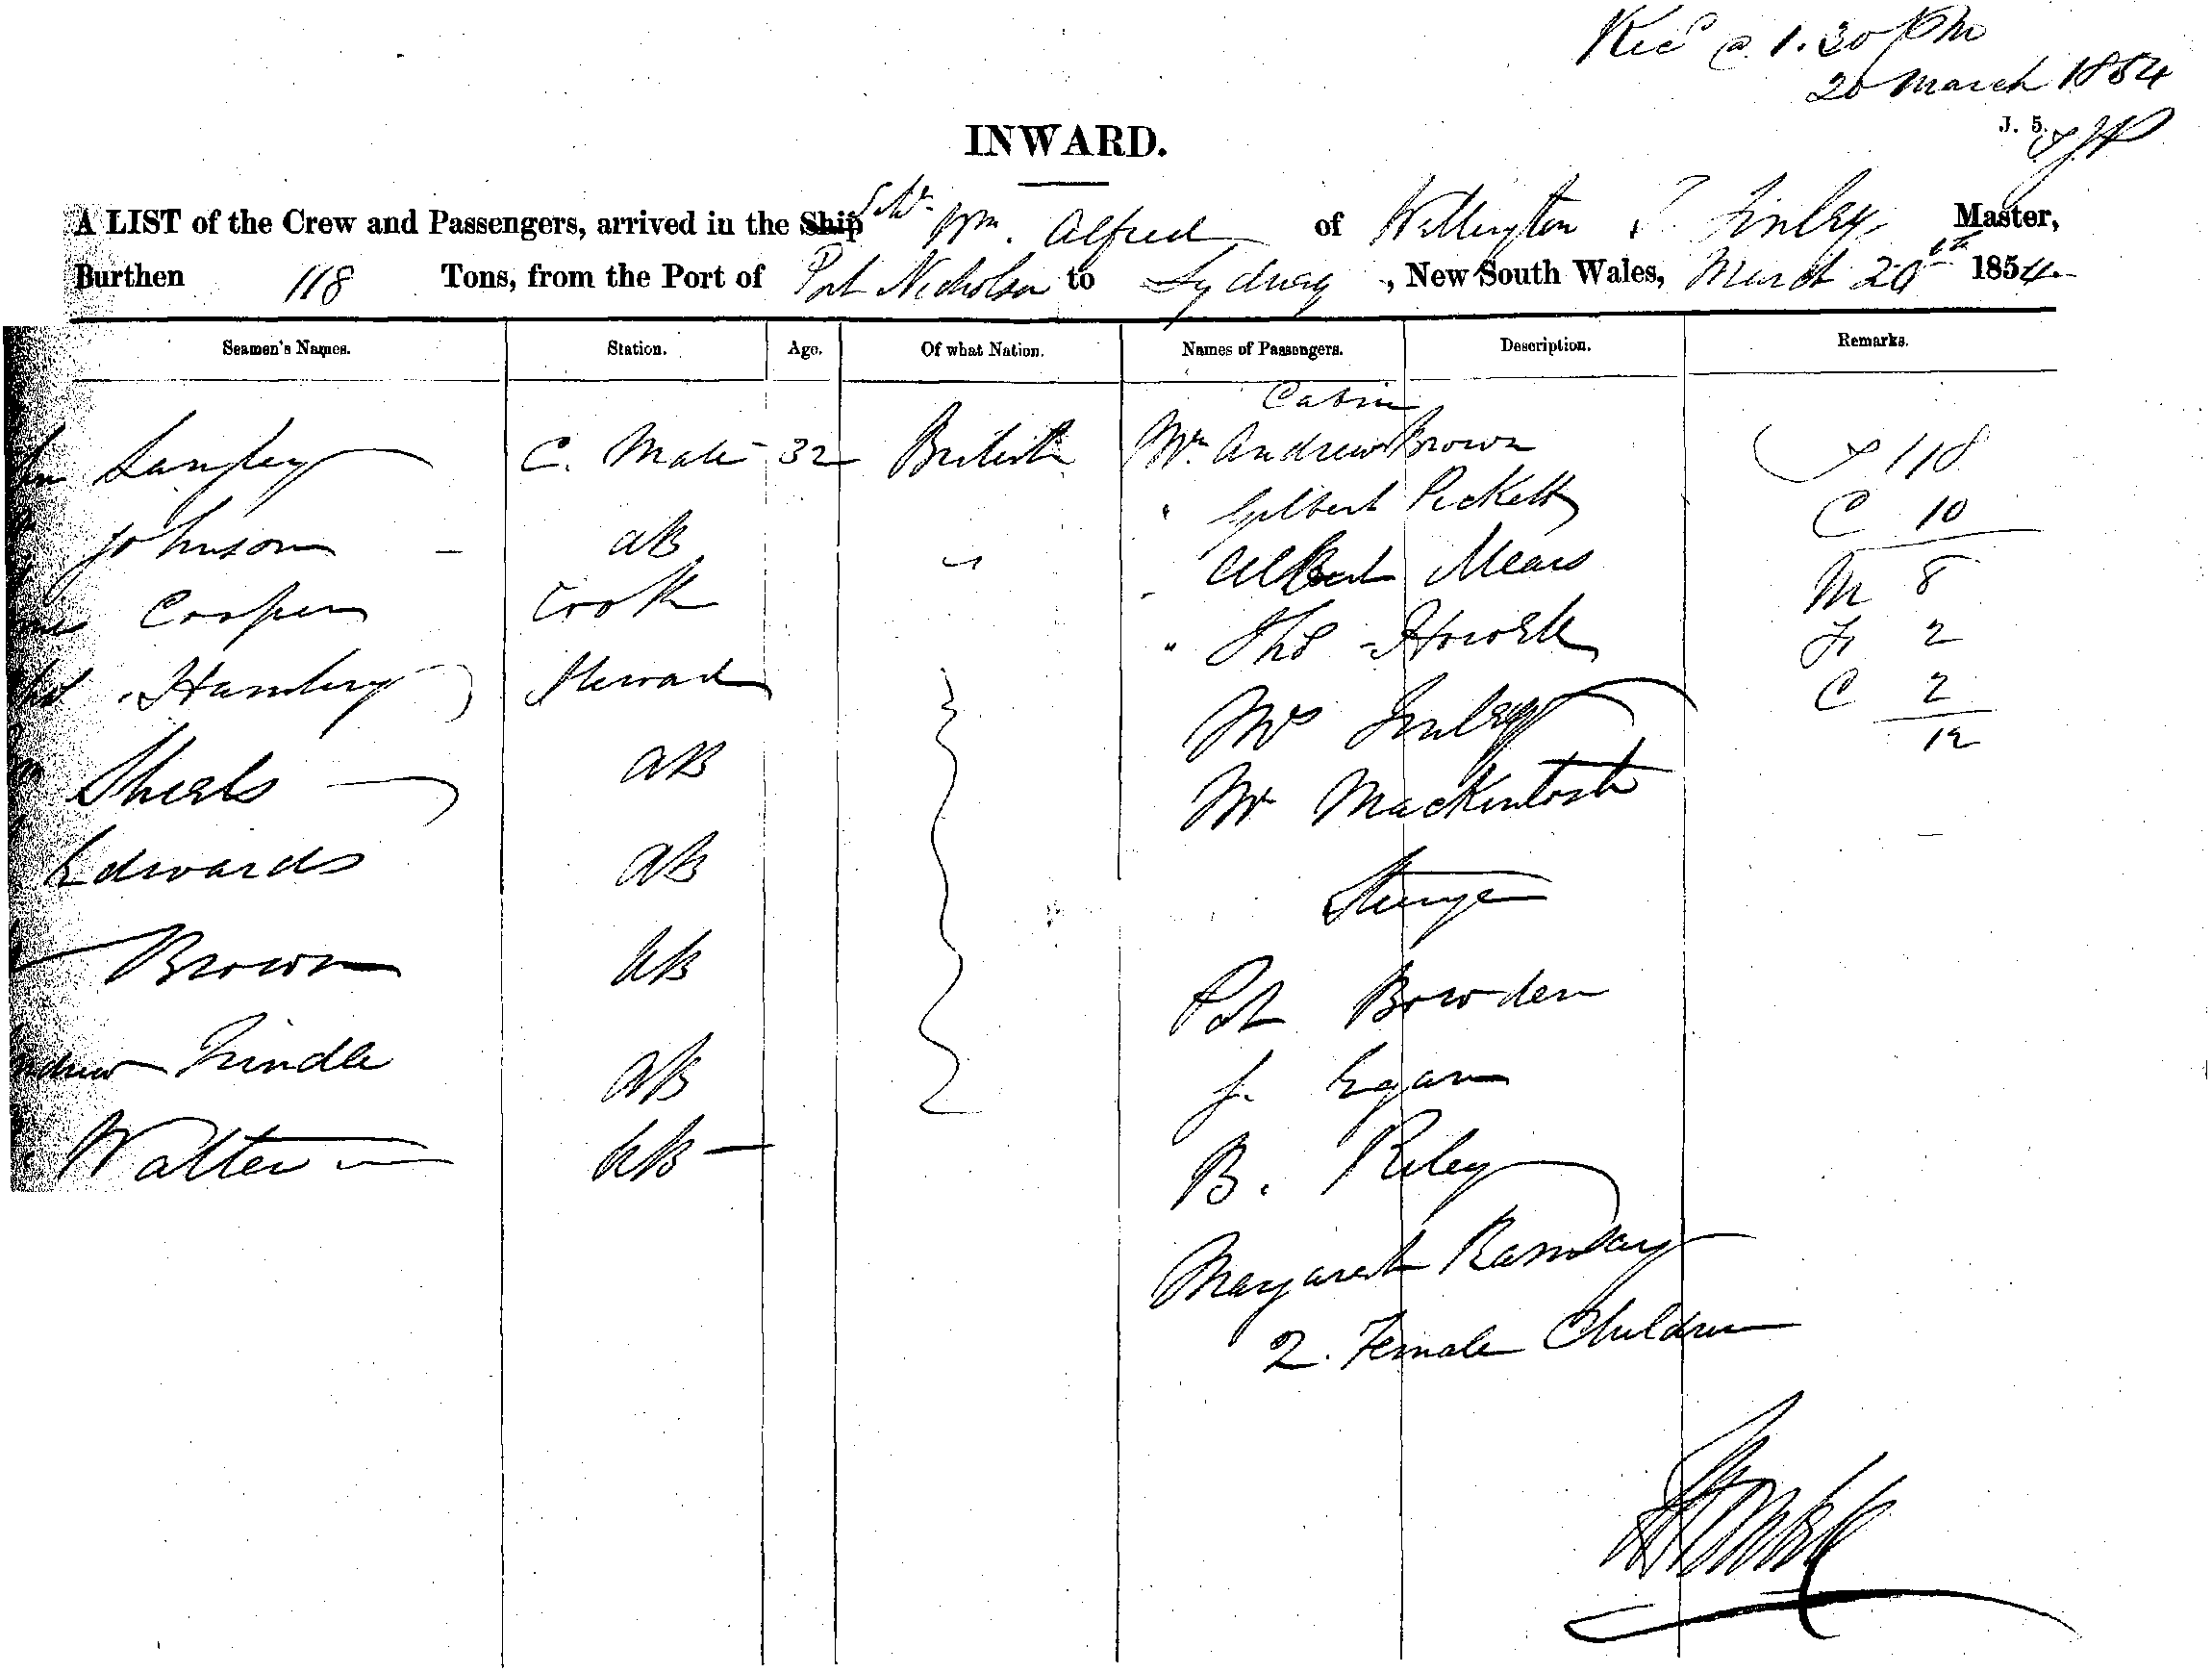 Recd @ 1.30 PM
20 March 1854
J. 5.
INWARD.
A LIST of the Crew and Passengers, arrived in the Ship Schr. Wm. Alfred of Wellington Finlay Master,
Burthen 118 Tons, from the Port of Port Nicholson to Sydney, New South Wales, March 20th 1854
Seamen's Names. Station. Age. Of what Nation. Names of Passengers. Description. Remarks.
Cabin
Langley C. Mate 32 British Mr. Andrew Brown 118
Johnson AB " " Gilbert Pickett C 10
Cooper Cook " Albert Mears M 8
Steward " Thos Howell F 2
Mrs Finlay C 2
12
AB Mr Mackintosh
Edwards AB Steerage
Brown AB Pat Bowden
Andrew Grindle AB J. Egan
Walter AB B. Riley
Margaret Ramsay
2. Female Children